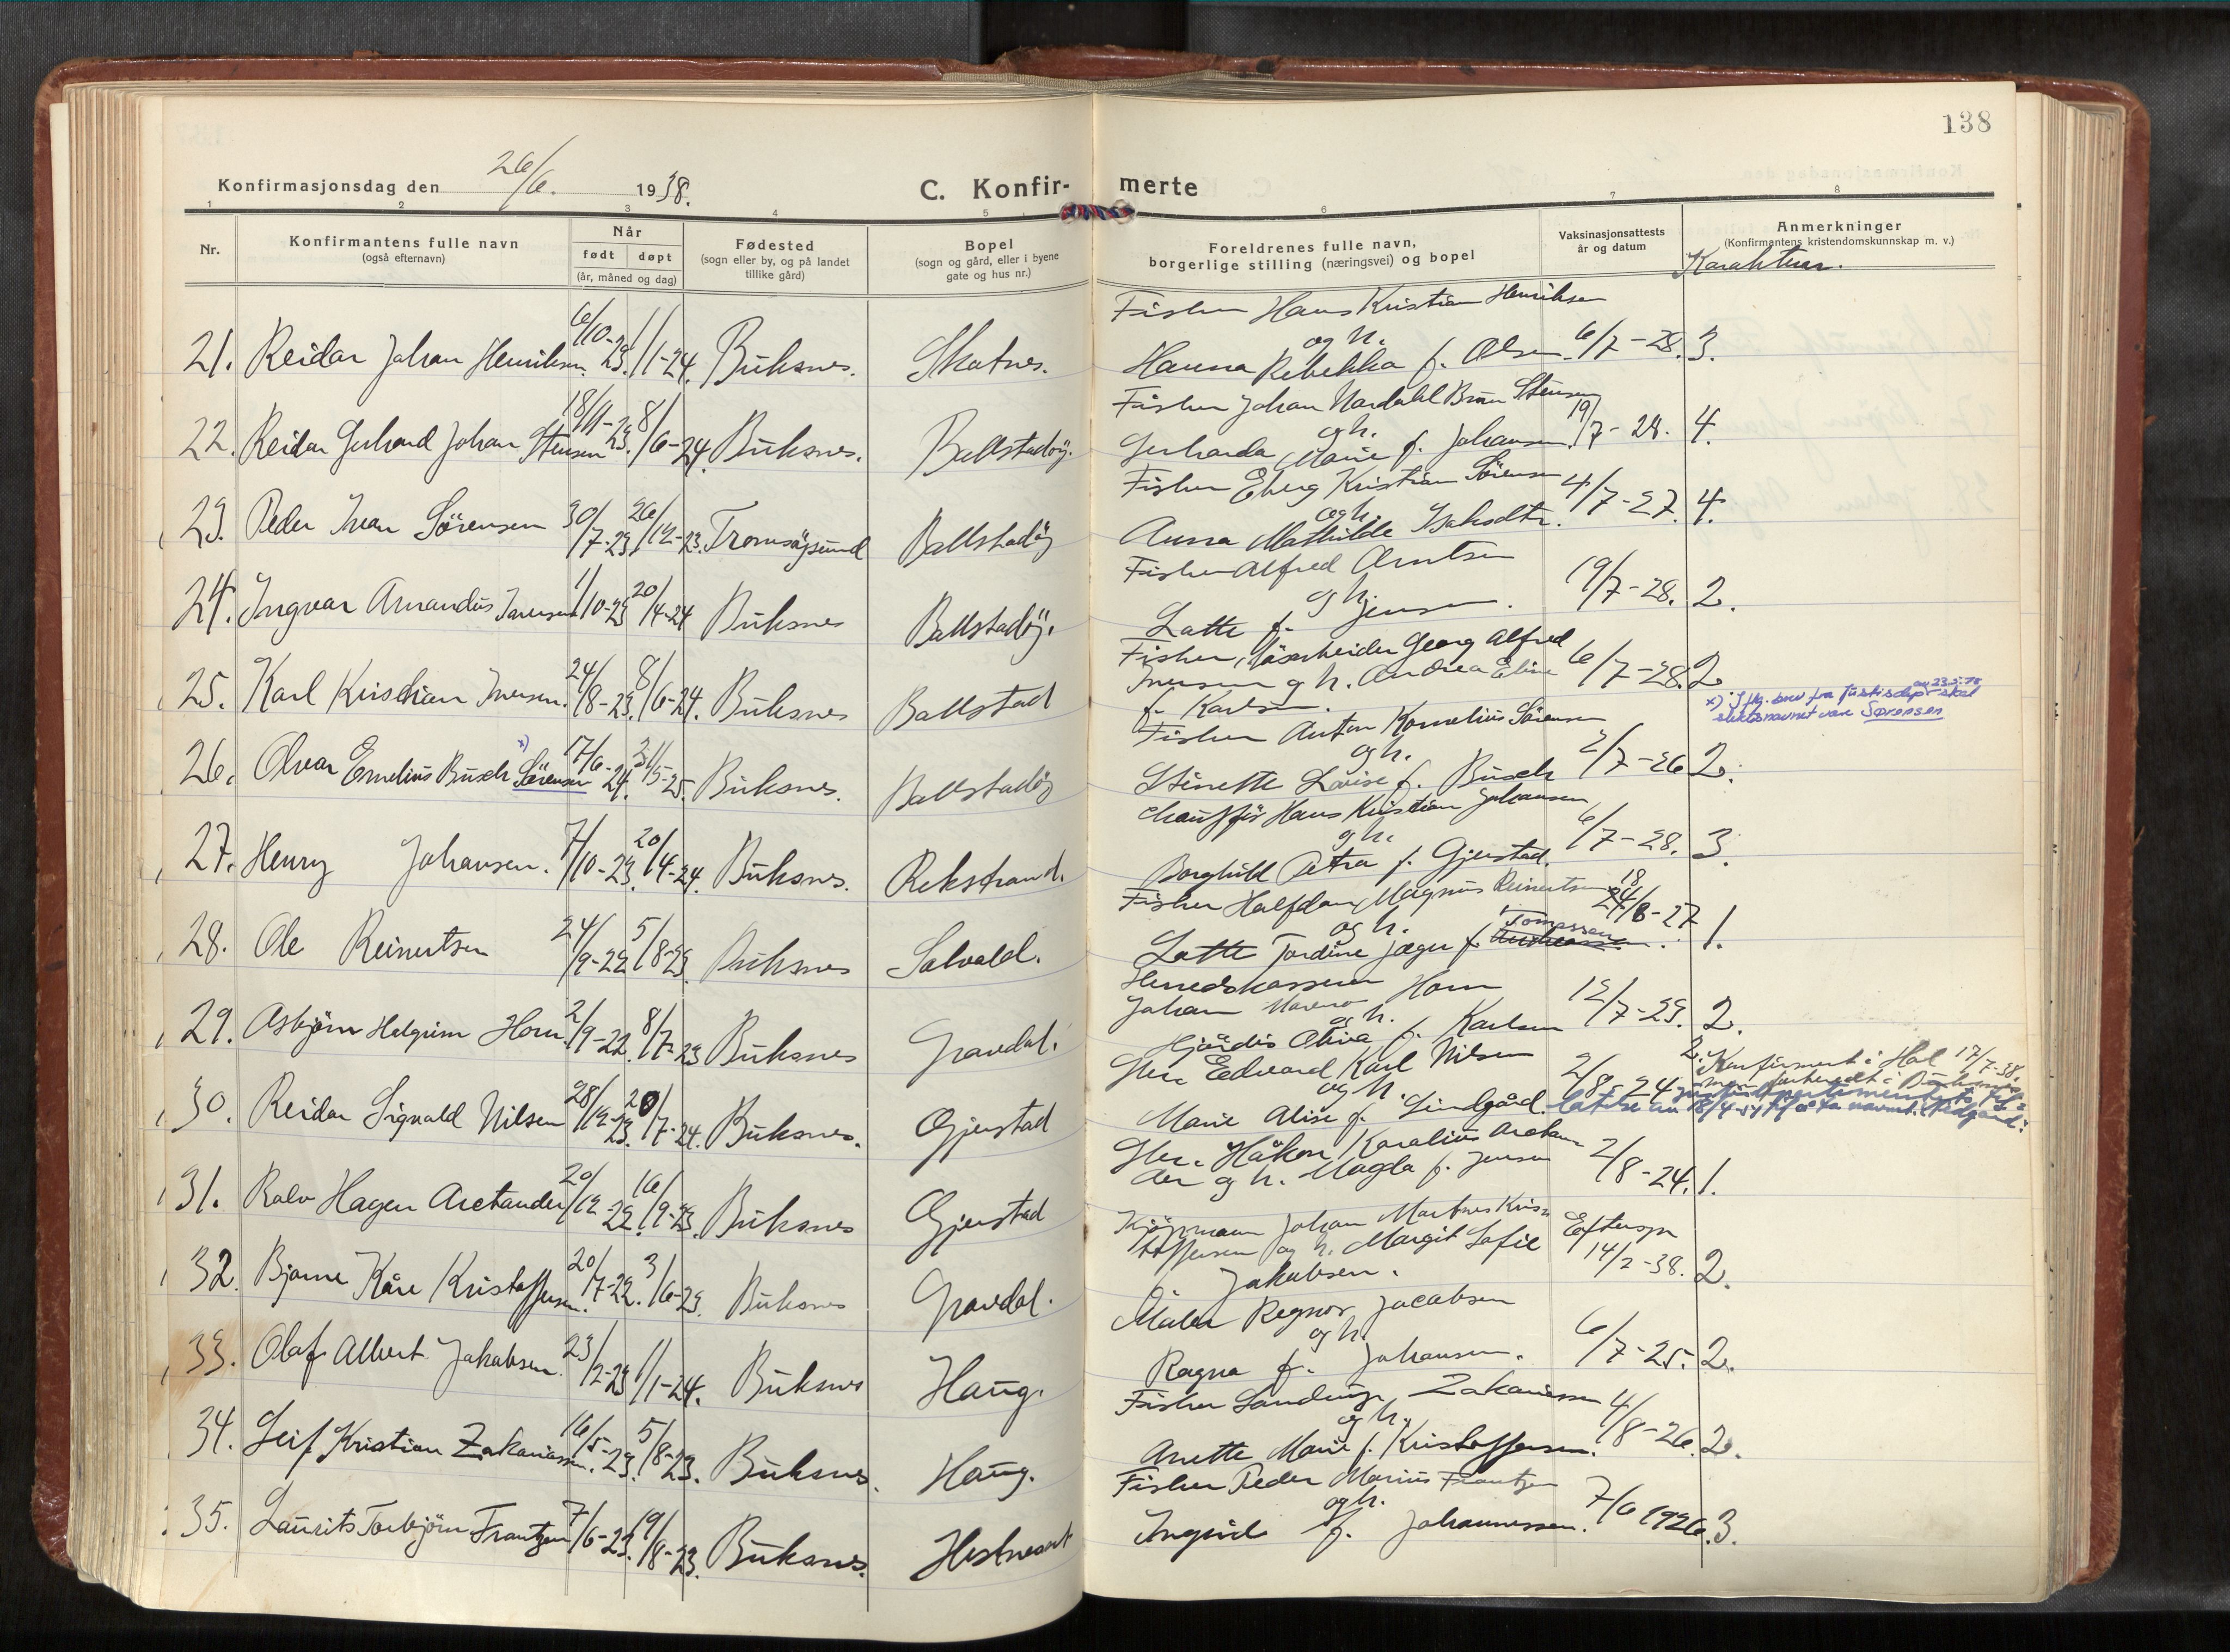 138
Konfirmasjonsdag den 26/6. 1938.
C. Konfir-
merte
1 2 3 4 5 6 7 8
Nr.
Konfirmantens fulle navn
(også efternavn)
Når
født døpt
(år, måned og dag)
Fødested
(sogn eller by, og på landet
tillike gård)
Bopel
(sogn og gård, eller i byene
gate og hus nr.)
Foreldrenes fulle navn,
borgerlige stilling (næringsvei) og bopel
Vaksinasjonsattests
år og datum
Anmerkninger
(Konfirmantens kristendomskunnskap m. v.)
Karakterer.
21. Reidar Johan Henriksen 6/10-23. 1/1-24. Buksnes. Skotnes.
Fisker Hans Kristian Henriksen
og h.
Hanna Rebekka f. Olsen. 6/7-28. 3.
22. Reidar Gerhard Johan Stensen 18/11-23. 8/6-24. Buksnes. Ballstadøy.
Fisker Johan Nordahl Brun Stensen
og h.
Gerharda Marie f. Johansen. 19/7-28. 4.
23. Peder Ivan Sörensen 30/7-23. 26/12-23. Tromsøysund Ballstadöy
Fisker Eberg Kristian Sörensen
og h.
Anna Mathilde Isaksdtr. 4/7-27. 4.
24. Ingvar Amandus 1/10-23 20/4-24 Buksnes Ballstadöy.
Fisker Alfred Arntsen
og h.
Lotte f. Jensen. 19/7-28. 2.
25. Karl Kristian Iversen. 24/8-23. 8/6-24. Buksnes Ballstad
Fisker, løsarbeider Georg Alfred
Iversen og h. Andrea Eline 6/7-28. 2
f. Karlsen.
x) Iflg. brev fra Justisdep. av 23.5.78 skal
slektsnavnet være Sørensen
26. Olvar Ernelius Busch Sörensen x) 17/6-24. 31/5-25. Buksnes. Ballstadöy
Fisker Anton Kornelius Sörensen
og h.
Stinette Lovise f. Busch 2/7-26 2.
27. Henry Johansen. 7/10-23. 20/4-24. Buksnes. Rekstrand.
Chauffør Hans Kristian Johansen
og h.
Borghild Petra f. Gjerstad. 6/7-28. 3.
28. Ole Reinertsen 24/9-22 5/8-23 Buksnes Solvold.
Fisker Halfdan Magnus Reinertsen 18/8-27
og h. Tomassen
Lotte Tordine Jæger f. 1.
29. Asbjörn Helgrim Horn 2/9-22. 8/7-23 Buksnes Gravdal.
Herredskasserer
Johan Horn
og h.
Hjördis Oliva f. Karlsen 12/7-23. 2.
30. Reidar Sigvald Nilsen 28/12-23. 20/7-24. Buksnes. Gjerstad
Edvard Karl Nilsen
og h.
Marie Alise f. Lindgård. 2/8-24.
2. Konfirmert i Hol 17/7-38.
men forberedt i Buksnes
Justisdepartementets til-
latelse av 18/4-51 til å ta navnet
31. Rolv Hagen Arctander 20/12-22. 16/9-23. Buksnes Gjerstad
Håkon Karelius Arctan
der og h. Magla f. Jensen 2/8-24. 1.
32. Bjarne Kåre Kristoffersen. 20/7-22. 3/6-23. Buksnes Gravdal.
Kjöpmann Johan Martines Kris
toffersen og h. Margit Sofie
f. Jakobsen. 14/2-38. 2.
33. Olaf Albert Jakobsen. 23/12-23 1/1-24. Buksnes Haug.
Maler Regnor Jacobsen
og h.
Ragna f. Johansen. 6/7-25. 2.
34. Leif Kristian Zakariassen. 16/5-23. 5/8-23. Buksnes. Haug.
Fisker Zakariassen
og h.
Anette Marie f. Kristoffersen. 4/8-26. 2.
35. Laurits Torbjörn Frantzen 7/6-23. 19/8-23. Buksnes.
Fisker Peder Marius Frantzen
og h.
Ingrid f. Johannessen. 7/6 1926. 3.